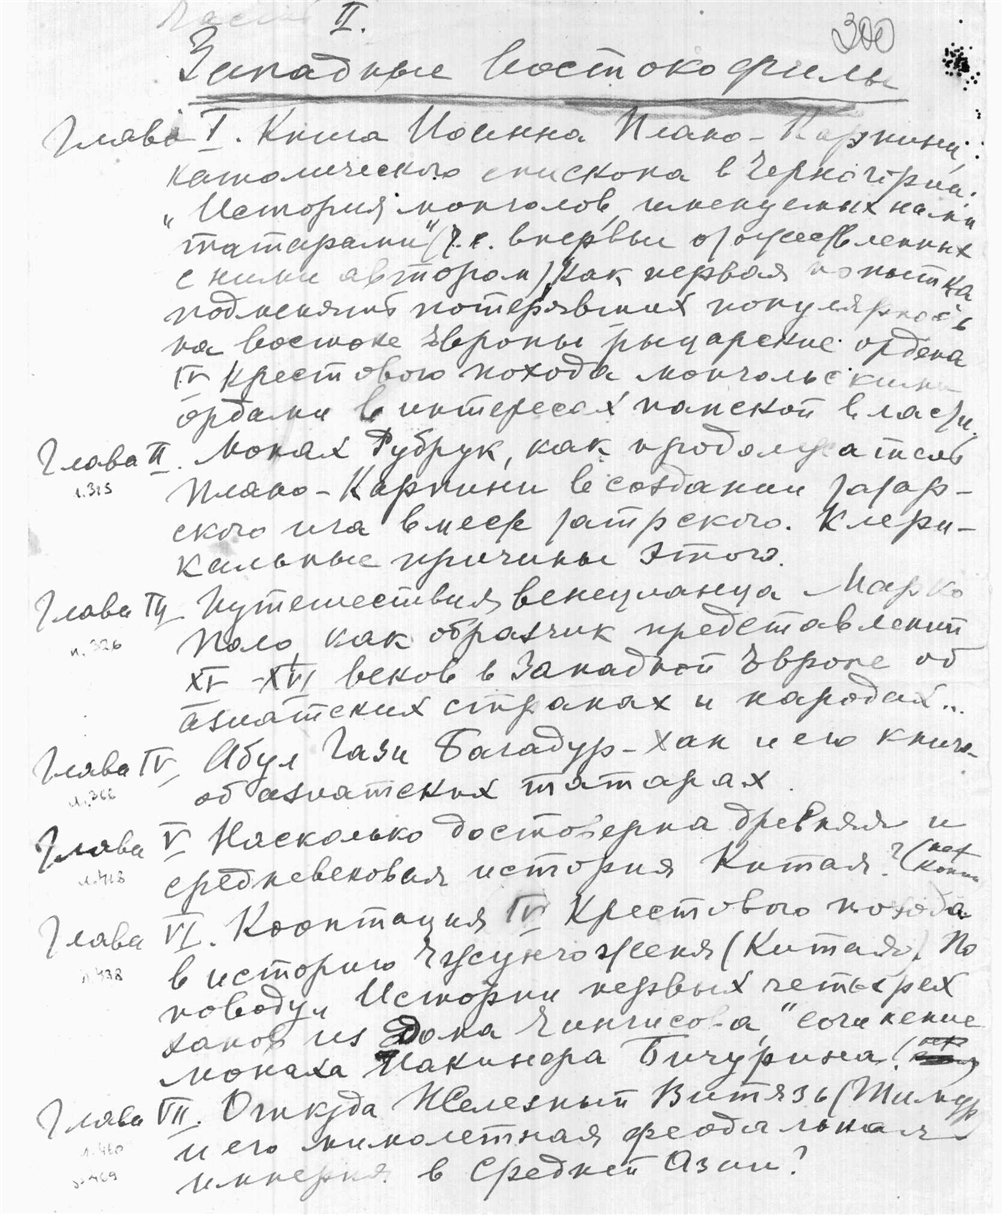 Часть II.
300
Западные востокофилы
Глава I. Книга Иоанна Плано-Карпини,
католического епископа в Черногории
„История монголов, именуемых нами
татарами" (т.е. впервые отожествленных
с ними автором) как первая попытка
подменять потерявших популярность
на востоке Европы рыцарские ордена
IV Крестового похода монгольскими
ордами в интересах папской власти.
Глава II. Монах Рубрук, как продолжатель
л.315
Плано-Карпини в создании татар-
ского ига вместо татрского. Клери-
кальные причины этого.
Глава III. Путешествия венецианца Марко
л.326
Поло как образчик представлений
XV-XVI веков в Западной Европе об
азиатских странах и народах...
Глава IV. Абул Гази Багадур-хан и его книга
л.366
об азиатских татарах.
Глава V Насколько достоверна древняя и
л.428
средневековая история Китая? (нет
конца
Глава VI. Кооптация IV Крестового похода
л.438
в историю Чжунгоженя (Китая). По
поводу „Истории первых четырех
ханов из дома Чингисова," сочинение
монаха Иакинфа Бичурина.
Глава VII. Откуда Железный Витязь (Тимур)
л.460
и его мимолетная феодальная
л.469
империя в Средней Азии?